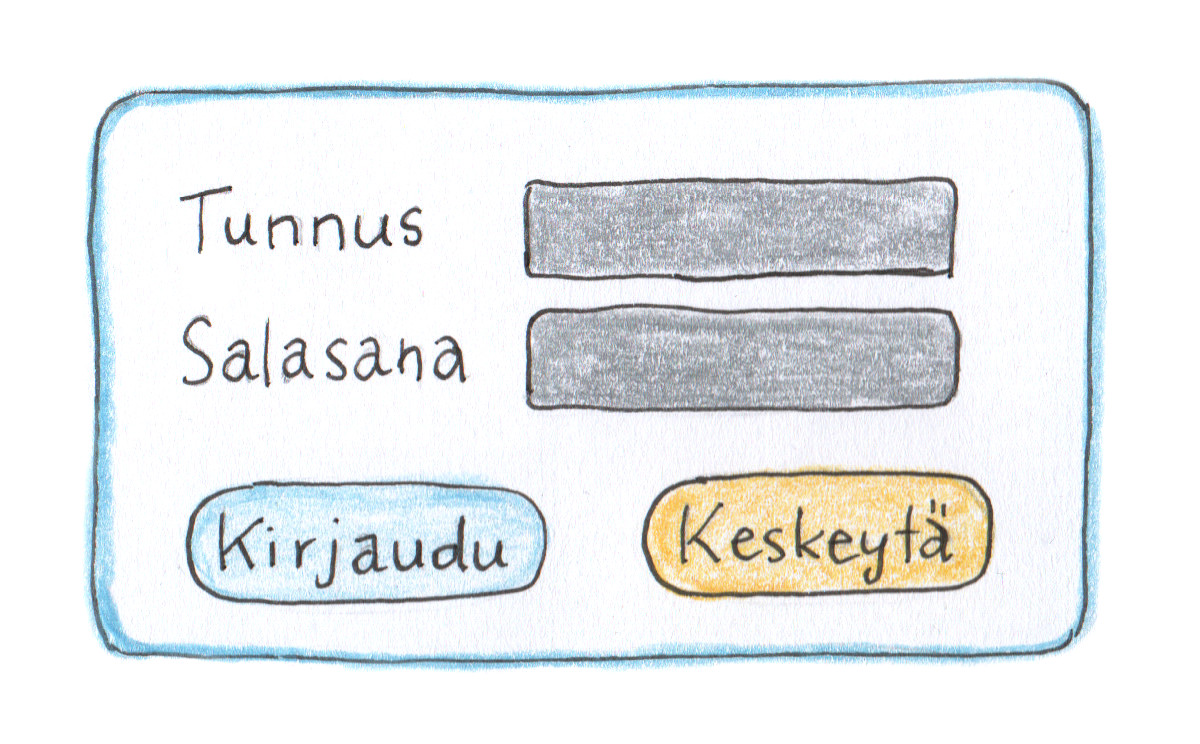 Tunnus
Salasana
Kirjaudu
Keskeytä